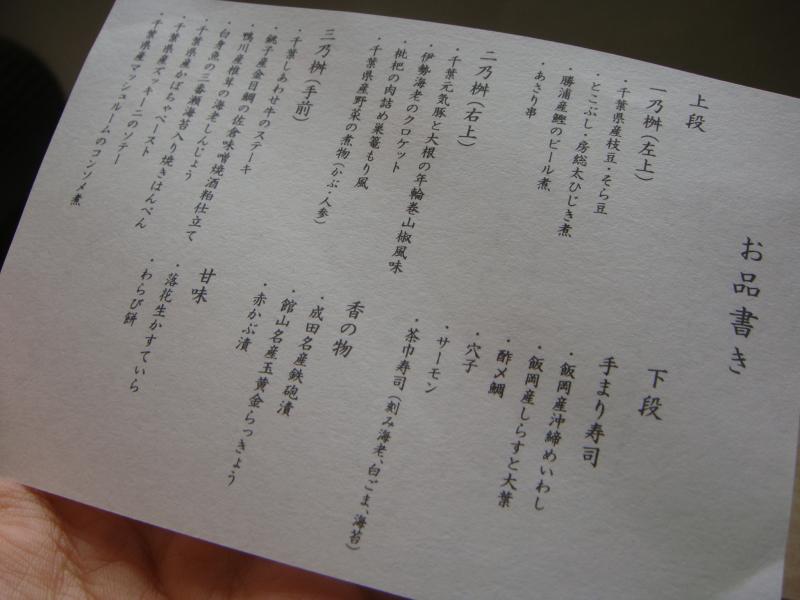 お品書き
上段
一乃桝(左上)
・千葉県産枝豆・そら豆
・とこぶし・房総太ひじき煮
・勝浦産鰹のビール煮
・あさり串
二乃桝(右上)
・千葉元気豚と大根の年輪巻山椒風味
・伊勢海老のクロケット
・枇杷の肉詰め巣篭もり風
・千葉県産野菜の煮物(かぶ・人参)
三乃桝(手前)
・千葉しあわせ牛のステーキ
・銚子産金目鯛の佐倉味噌焼酒粕仕立て
・鴨川産椎茸の海老しんじょう
・白身魚の三番瀬海苔入り焼きはんぺん
・千葉県産かぼちゃペースト
・千葉県産ズッキーニのソテー
・千葉県産マッシュルームのコンソメ煮
下段
手まり寿司
・飯岡産沖締めいわし
・飯岡産しらすと大葉
・酢〆鯛
・穴子
・サーモン
・茶巾寿司(刻み海老、白ごま、海苔)
香の物
・成田名産鉄砲漬
・館山名産玉黄金らっきょう
・赤かぶ漬
甘味
・落花生かすていら
・わらび餅